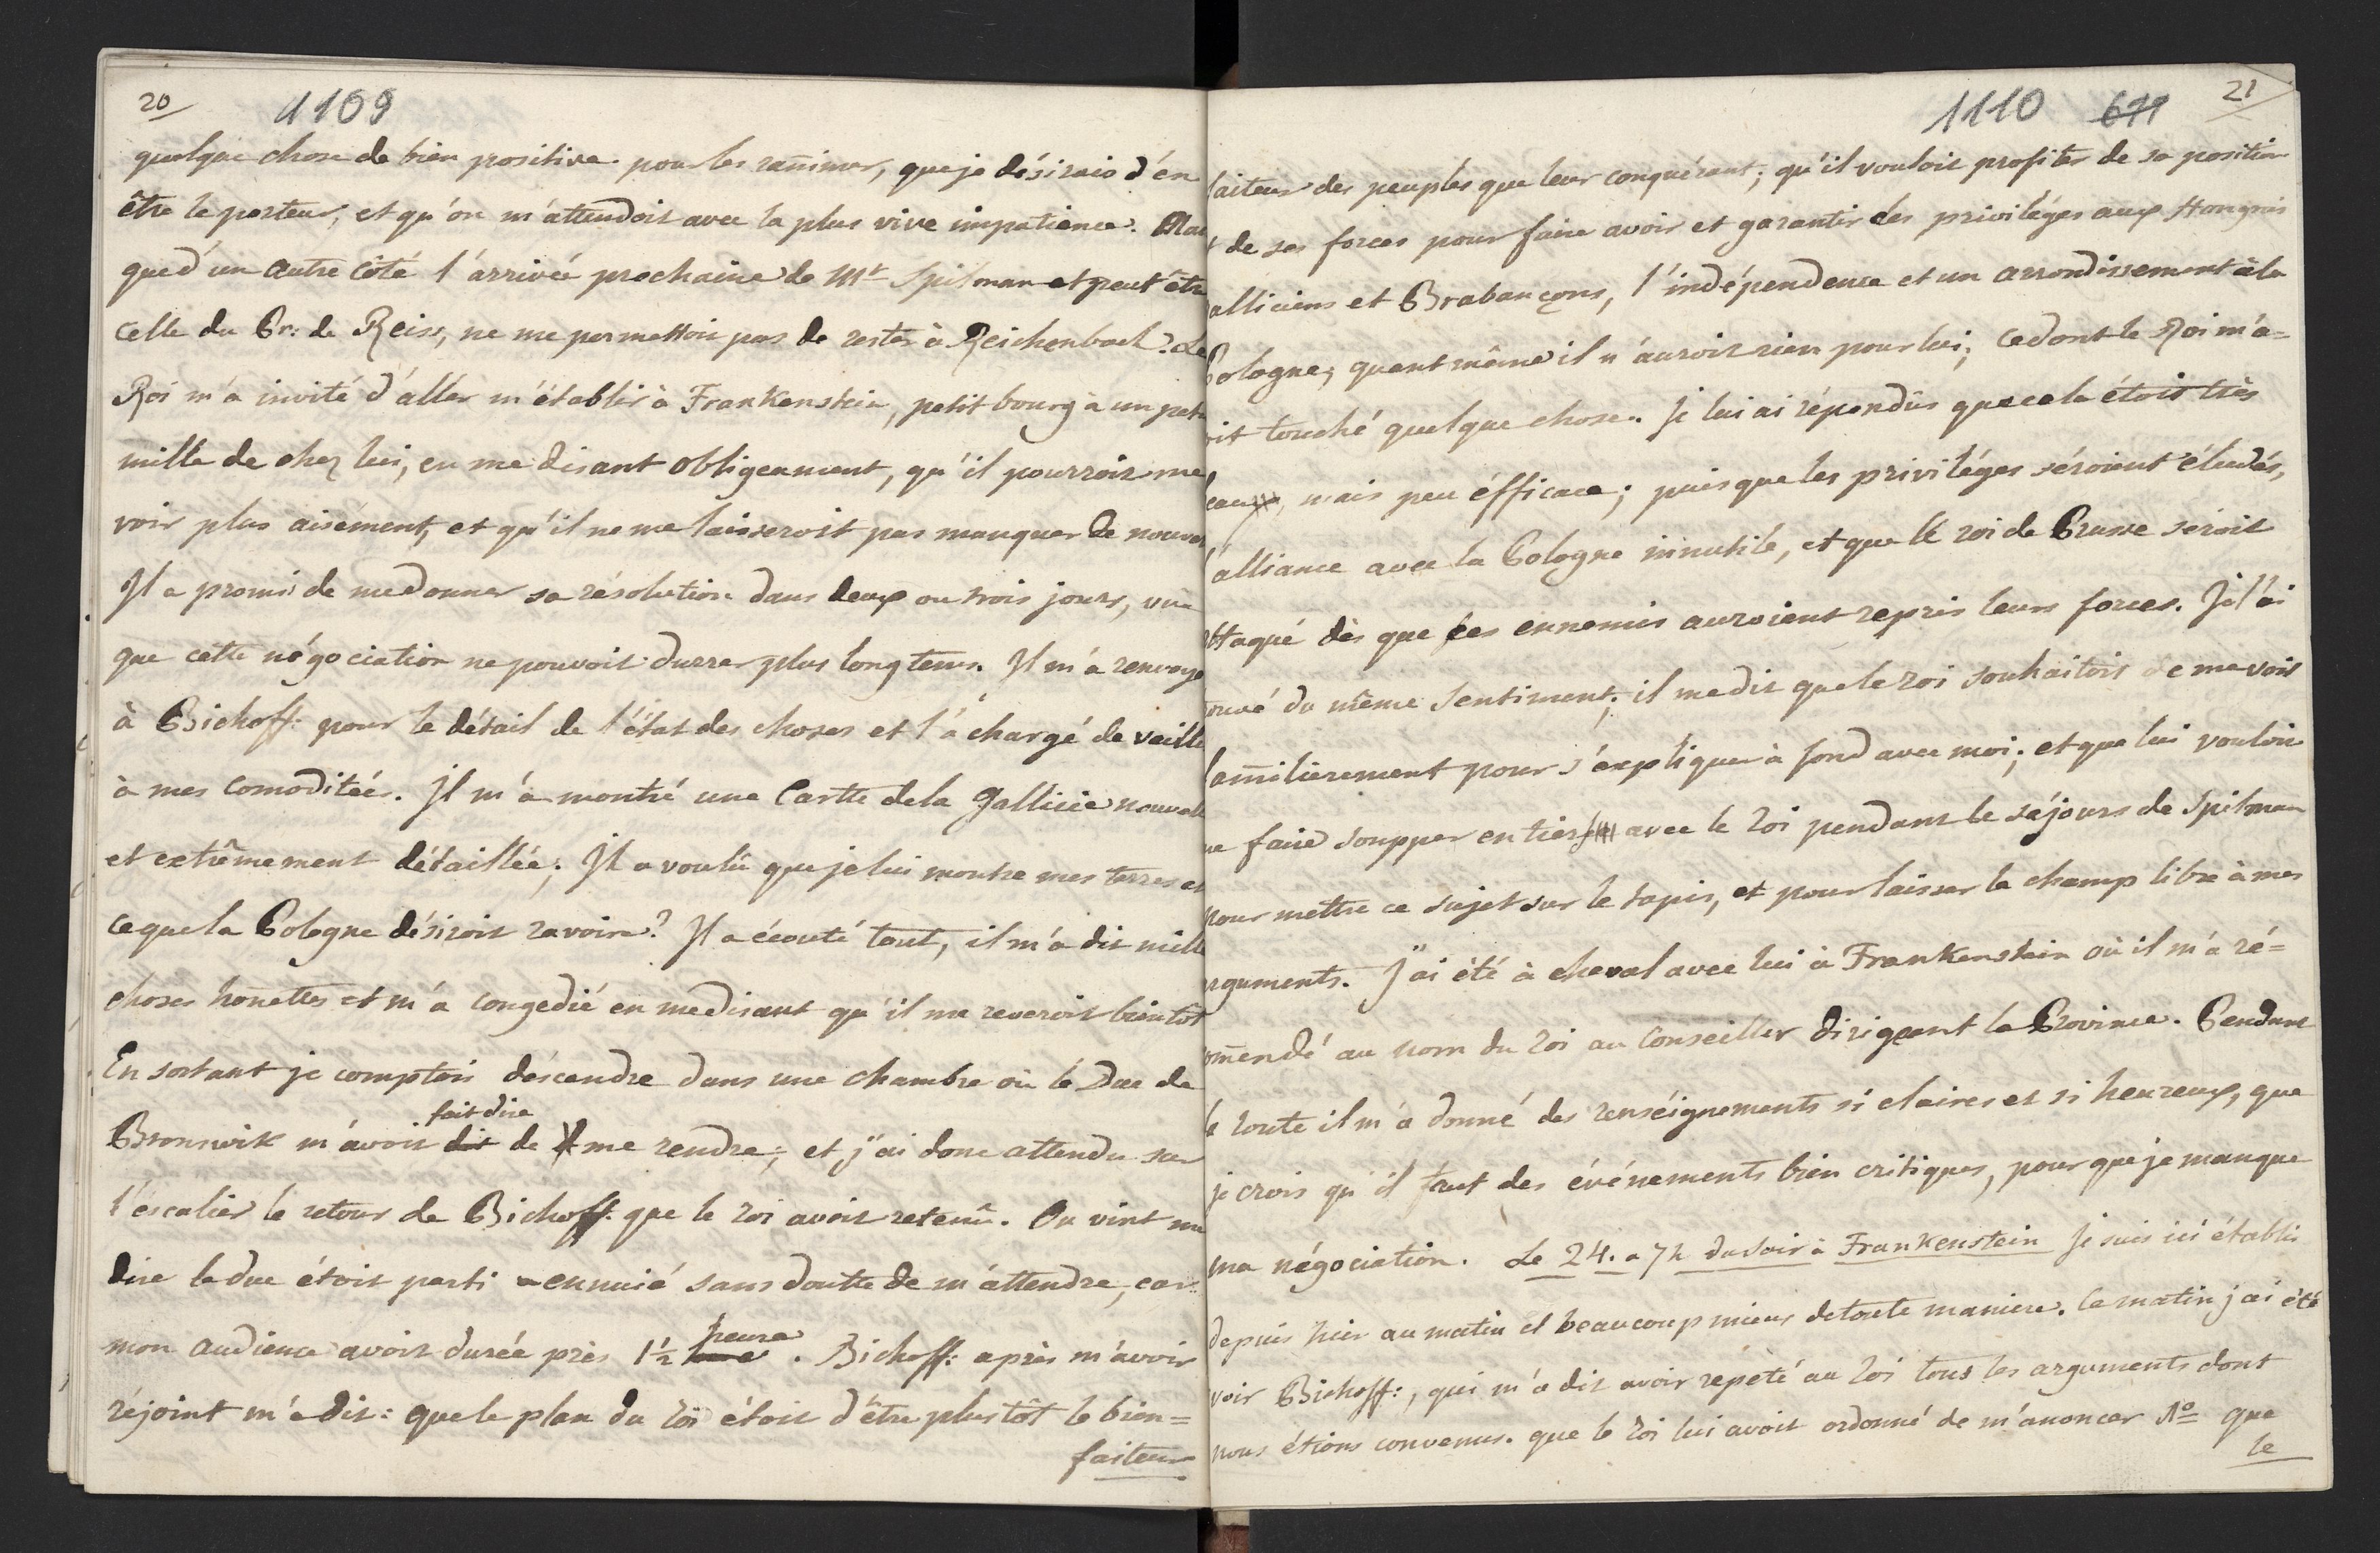 20
1109
quelque chose de bien positive pour les rañimer, que je désirais d'én
être le porteur, et qu'on m'attendoit avec la plus vive impatience. Mai
que d'un autre côté l'arrivée prochaine de Mr Spilman et peut être
celle du Pr: de Reiss, ne me permettoit pas de rester à Reichenbach. Le
Roi m'a invité d'aller m'établir à Frankenstein, petit bourg à un petit
mille de chez lui, en me disant obligeament, qu'il pourroit me
voir plus aisément, et qu'il ne me laisseroit pas manquer de nouve
Il a promis de me donner sa résolution dans deux ou trois jours, vue
que cette négociation ne pouvoit durrer plus longtems. Il m'a renvoyé
à Bichoff: pour le détail de l'état des choses et l'a chargé de veille
à mes comoditées. Il m'a montré une Cartte de la Gallicie nouvelle
et extrêmement détaillée; Il a voulu que je lui montre mes terres et
ce que la Pologne désiroit ravoir? Il a écouté tout, il m'a dit mille
choses honettes et m'a congedié en me disant qu'il me reveroit bientôt
En sortant je comptois déscendre dans une chambre où le Duc de
fait dire
Bronswik m'avoit dit de me rendre; et j'ai donc attendu sur
l'éscalier le retour de Bichoff: que le roi avoit retenû. On vint me
dire le duc étoit parti ennuié sans doutte de m'attendre, car
heure
mon audience avoit durée près 1½ . Bichoff: après m'avoir
réjoint m'a dit: que le plan du roi étoit d'être plus tôt le bien=
faiteur
1110 671 21
faiteur des peuples que leur conquérant; qu'il vouloit profiter de sa position
t de ses forces pour faire avoir et garantir des priviléges aux Hongrois
alliciens et Brabançons, l'indépendence et un arrondissement à la
Pologne, quant même il n'auroit rien pour lui; ce dont le Roi m'a=
oit touché quelque chose. Je lui ai répondûs que cela étoit très
beau, mais peu éfficace; puisque les priviléges séroient éludés,
l'alliance avec la Pologne innutile, et que le roi de Prusse séroit
attaqué dès que ses ennemis auroient repris leurs forces. Je l'ai
rouvé du même sentiment; il me dit que le roi souhaitoit de me voir
familièrement pour s'éxpliquer à fond avec moi; et que lui vouloit
me faire soupper en tiers avec le roi pendant le séjours de Spilman
pour mettre ce sujet sur le tapis, et pour laisser le champ libre à mes
rguments. J'ai été à cheval avec lui à Frankenstein où il m'a ré=
omendé au nom du roi au Conseiller dirigeant la Province. Pendant
la route il m'a donné des renséignements si claires et si heureux, que
je crois qu'il faut des événements bien critiques, pour que je manque
ma négociation. Le 24. a 7h du soir à Frankenstein Je suis ici établi
depuis hier au matin et beaucoup mieux de toute maniere. Ce matin j'ai été
voir Bichoff:, qui m'a dit avoir repété au roi tous les arguments dont
nous étions convenus. que le roi lui avoit ordonné de m'anoncer 1º que
le